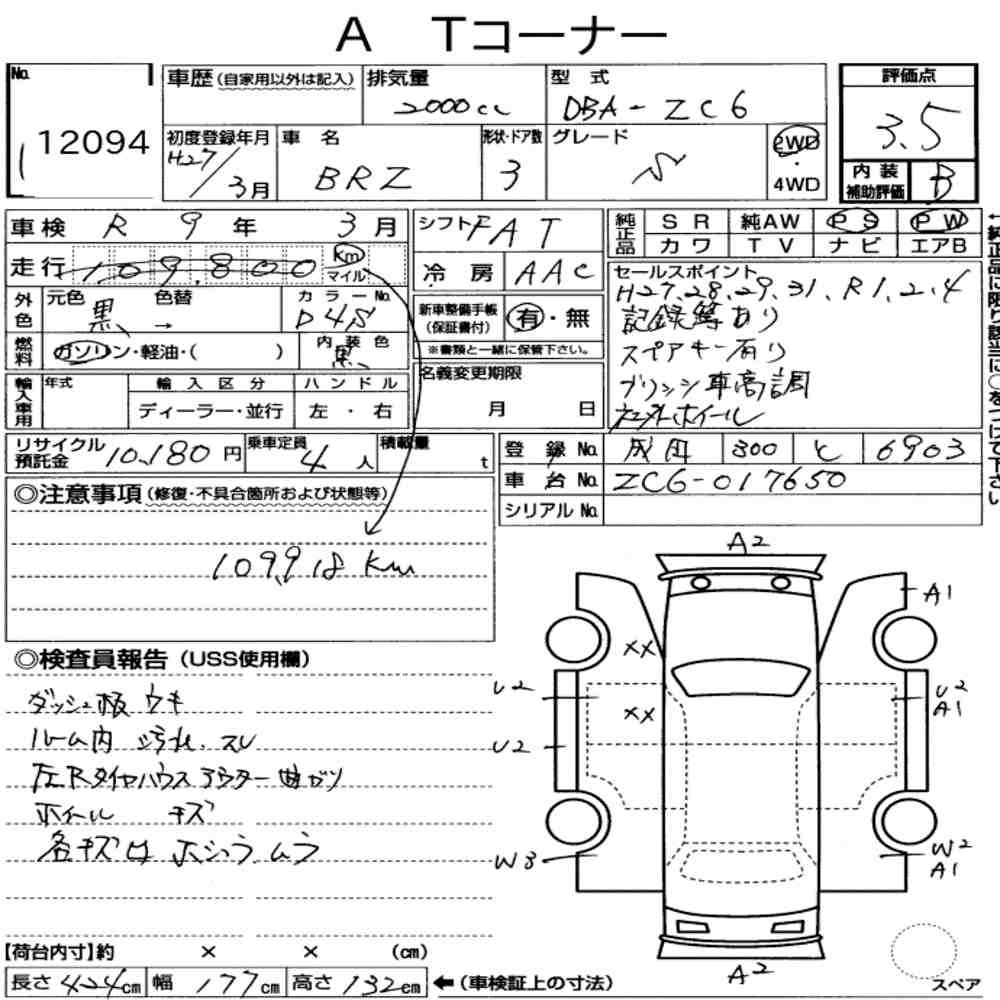 A Tコーナー
No. 12094
車歴 (自家用以外は記入)
排気量 2000cc
型式 DBA-ZC6
評価点 3.5
初度登録年月 H27/3月
車名 BRZ
形状・ドア数 3
グレード S
2WD・4WD
内装補助評価 B
車検 R 9年 3月
シフト FAT
純正品 SR 純AW PS PW
カワ TV ナビ エアB
走行 109,800 Km マイル
冷房 AAC
セールスポイント
H27.28.29.31、R1.2.4
記録簿あり
スペアキー有り
ブリッツ車高調
社外ホイール
外色 元色 黒 色替 →
カラーNo. D4S
新車整備手帳 (保証書付) 有・無
※書類と一緒に保管下さい。
燃料 ガソリン・軽油・( )
内装色 黒
名義変更期限 月 日
輸入車用 年式 輸入区分 ハンドル
ディーラー・並行 左・右
リサイクル預託金 10,180円
乗車定員 4人
積載量 t
登録No. 300 と 6903
車台No. ZC6-017650
シリアルNo.
◎注意事項 (修復・不具合箇所および状態等)
109,918 Km
◎検査員報告 (USS使用欄)
ダッシュ板 ウキ
ルーム内 汚れ、スレ
左Rタイヤハウス アウター 曲ガリ
ホイール キズ
各キズ ムラ
A2
A1
XX
XX
U2
U2
A1
U2
W3
W2
A1
A2
【荷台内寸】約 × × (cm)
長さ 424cm 幅 177cm 高さ 132cm ←(車検証上の寸法)
スペア